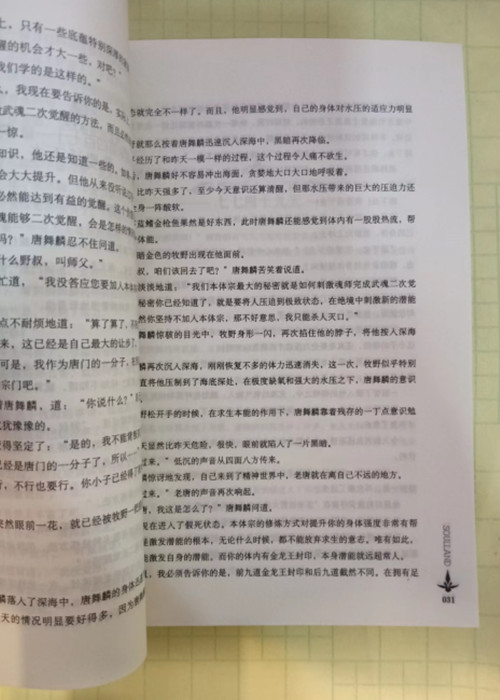 上，只有一些底蕴特别深厚的
醒的机会才大一些，对吧？"
我们学的是这样的。"
，我现在要告诉你的是，实际
武魂二次觉醒的方法，而且必
一惊。
知识，他还是知道一些的，如
会大大提升。但他从来没听说
必然能达到有益的觉醒。这个
魂能够二次觉醒，会是怎样的
吗？"唐舞麟忍不住问道。
什么野叔，叫师父。"
忙道，"我没答应您要加入本体
点不耐烦地道："算了算了，
来，这已经是自己最大的让步了
可是，我作为唐门的一分子，
宗门吧。"
着唐舞麟，道："你说什么？
犹豫的。
得坚定了："是的，我不能背
已经是唐门的一分子了，所以
行，不行也要行。你小子已经得了
突然眼前一花，就已经被牧野一把
麟落入了深海中，唐舞麟的身体迅
天的情况明显要好得多，因为唐舞
就完全不一样了。而且，他明显感觉到，自己的身体对水压的适应力明显
就那么按着唐舞麟迅速沉入深海中，黑暗再次降临。
经历了和昨天一模一样的过程，这个过程令人痛不欲生。
唐舞麟好不容易冲出海面，贪婪地大口大口地呼吸着。
比昨天强多了，至少今天意识还算清醒，但那水压带来的巨大的压迫力还
身一阵酸软。
蓝鳍金枪鱼果然是好东西，此时唐舞麟还能感觉到体内有一股股热流，帮
体能。
暗金色的牧野出现在他面前。
叔，咱们该回去了吧？"唐舞麟苦笑着说道。
淡淡地道："我们本体宗最大的秘密就是如何刺激魂师完成武魂二次觉
秘密你已经知道，就是要将人压迫到极致状态，在绝境中刺激新的潜能
然你坚持不加入本体宗，那不好意思，我只能杀人灭口。"
舞麟惊骇的目光中，牧野身形一闪，再次掐住他的脖子，将他按入深海
麟再次沉入深海，刚刚恢复不多的体力迅速消失，这一次，牧野似乎特别
直将他压制到了海底深处，在极度缺氧和强大的水压之下，唐舞麟的意识
野松开手的时候，在求生本能的作用下，唐舞麟靠着残存的一丁点意识勉
天显然比昨天危险，很快，眼前就陷入了一片黑暗。
过来。"低沉的声音从四面八方传来。
麟惊讶地发现，自己来到了精神世界中，老唐就在离自己不远的地方。
过来。"老唐的声音再次响起。
，我这是怎么了？"唐舞麟问道。
现在进入了假死状态。本体宗的修炼方式对提升你的身体强度非常有帮
是激发潜能的根本，无论什么时候，都不能放弃求生的意志。唯有如此，
激发自身的潜能，而你的体内有金龙王封印，本身潜能就远超常人。
，我必须告诉你的是，前九道金龙王封印和后九道截然不同。在拥有足
SOULLAND
031